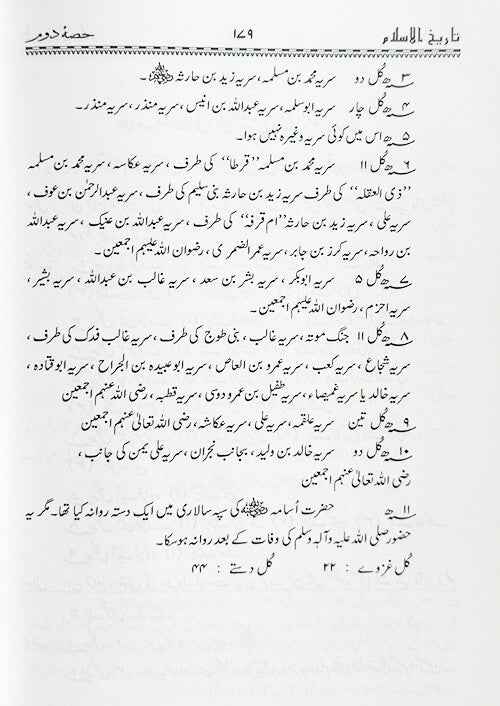 تاریخ الاسلام ۱۷۹ حصہ دوم
۳ھ کل دو سریہ محمد بن مسلمہ، سریہ زید بن حارثہ ﷺ۔
۴ھ کل چار سریہ ابو سلمہ، سریہ عبداللہ بن انیس، سریہ منذر، سریہ منذر۔
۵ھ اس میں کوئی سریہ وغیرہ نہیں ہوا۔
۶ھ کل ۱۱ سریہ محمد بن مسلمہ ”قرطا“ کی طرف، سریہ عکاسہ، سریہ محمد بن مسلمہ
”ذی العقلہ“ کی طرف سریہ زید بن حارثہ بنی سلیم کی طرف، سریہ عبدالرحمٰن بن عوف،
سریہ علی، سریہ زید بن حارثہ ”ام قرفہ“ کی طرف، سریہ عبداللہ بن عتیک، سریہ عبداللہ
بن رواحہ، سریہ کرز بن جابر، سریہ عمر الضمری، رضوان اللہ علیہم اجمعین۔
۷ھ کل ۵ سریہ ابوبکر، سریہ بشر بن سعد، سریہ غالب بن عبداللہ، سریہ بشیر،
سریہ احزم، رضوان اللہ علیہم اجمعین۔
۸ھ کل ۱۱ جنگ موتہ، سریہ غالب، بنی طوح کی طرف، سریہ غالب فدک کی طرف،
سریہ شجاع، سریہ کعب، سریہ عمرو بن العاص، سریہ ابو عبیدہ بن الجراح، سریہ ابو قتادہ،
سریہ خالد یا سریہ غمیصاء، سریہ طفیل بن عمرو دوسی، سریہ قطبہ، رضی اللہ عنہم اجمعین
۹ھ کل تین سریہ علقمہ، سریہ علی، سریہ عکاشہ، رضی اللہ تعالیٰ عنہم اجمعین
۱۰ھ کل دو سریہ خالد بن ولید، بجانب نجران، سریہ علی یمن کی جانب،
رضی اللہ تعالیٰ عنہم اجمعین
۱۱ھ حضرت اُسامہ ﷺ کی سپہ سالاری میں ایک دستہ روانہ کیا تھا۔ مگر یہ
حضور صلی اللہ علیہ وآلہ وسلم کی وفات کے بعد روانہ ہو سکا۔
کل غزوے : ۲۲ کل دستے : ۴۴